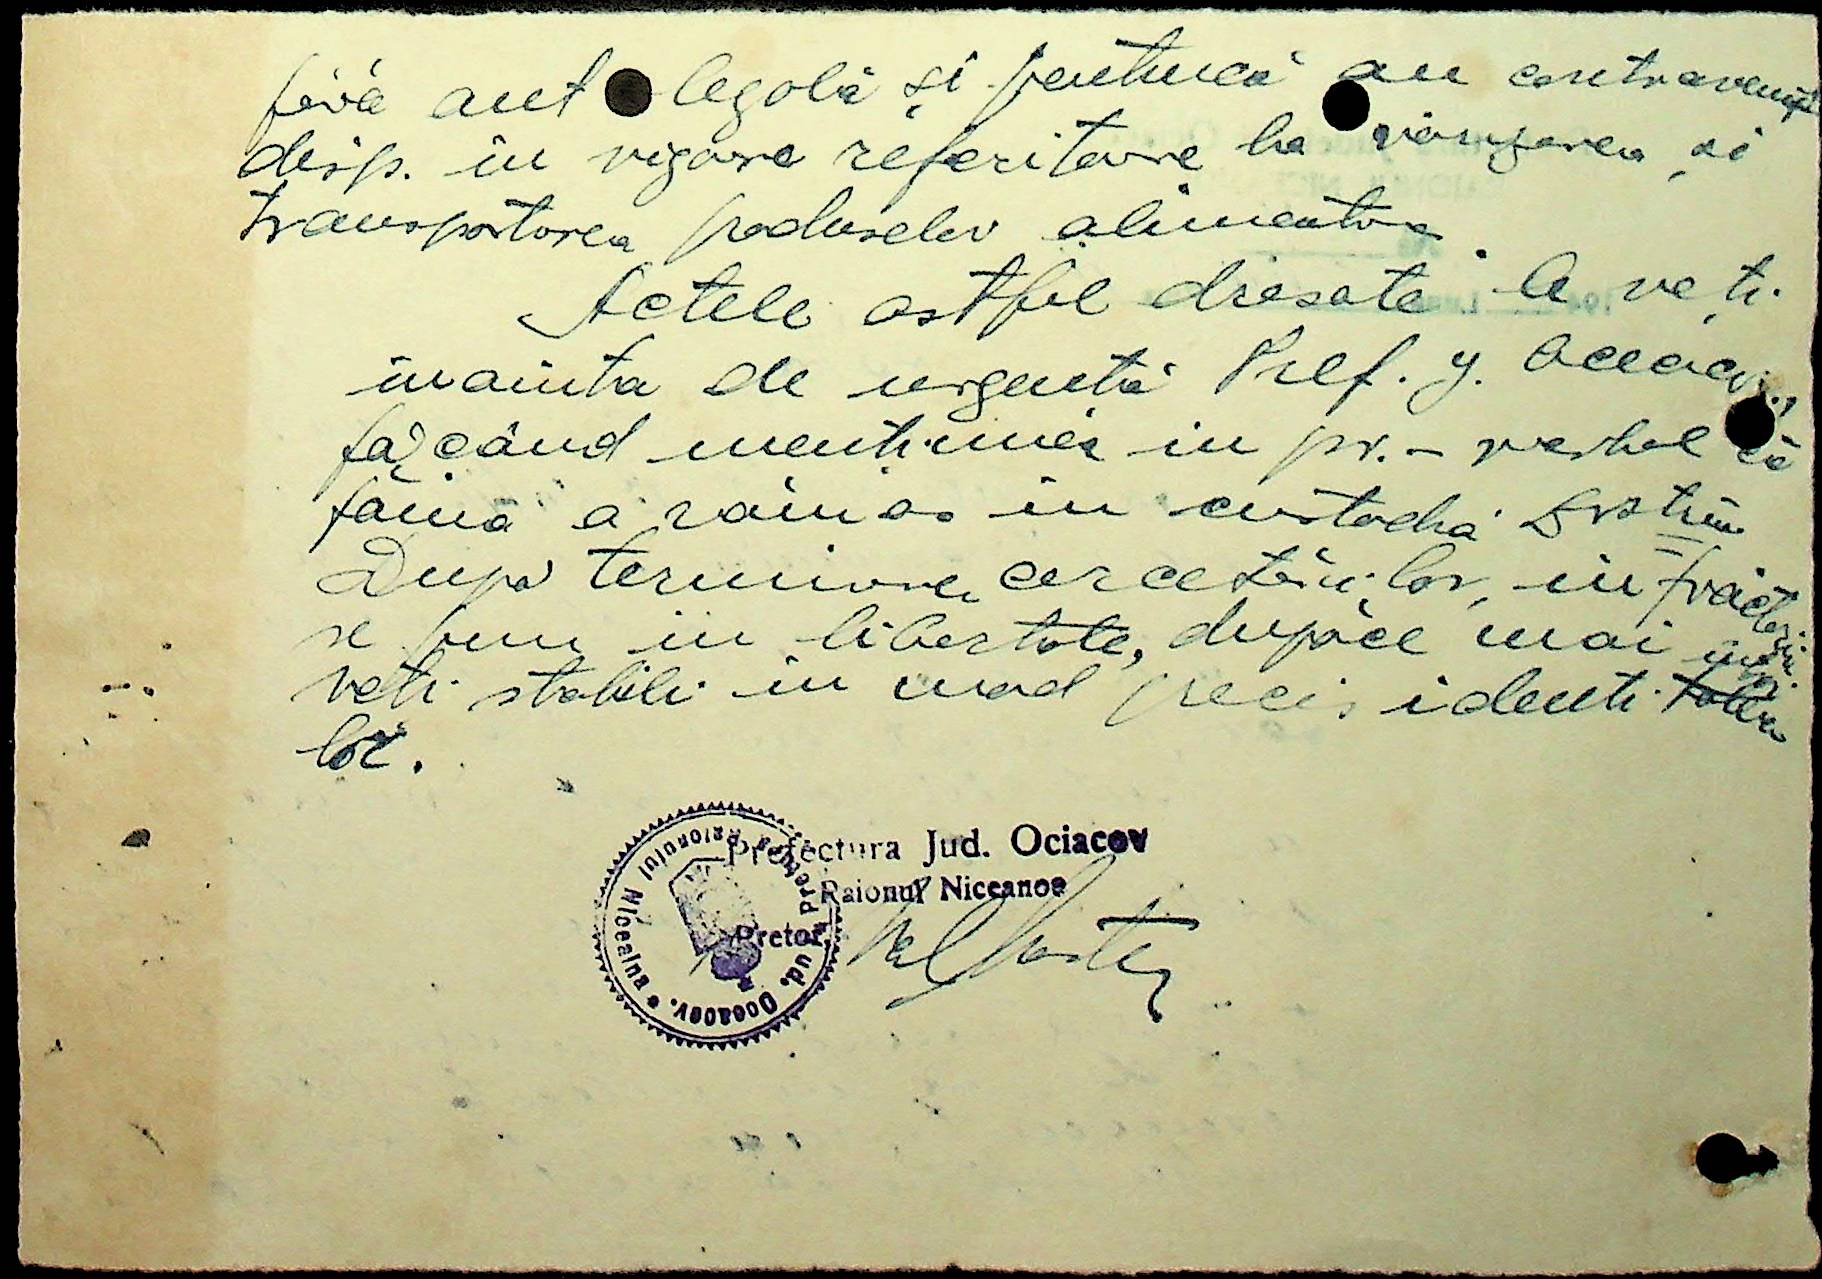 fără aut legală și pentrucă au contravenit
disp. în vigoare referitoare la vânzarea și
transportarea produselor alimentare.
Actele astfel dresate le veți
înainta de urgență Pref. J. Oceacov,
făcând mențiunea în pr.-verbal că
făina a rămas în custodia Dvstră
După terminarea cercetărilor, infractorii
se pun în libertate, dupăce mai
veți stabili în mod precis identitatea
lor.
Prefectura Jud. Ociacov
Raionul Niceanoe
Pretor,
Pretura Raionului Niceaina • Jud. Oceacov.